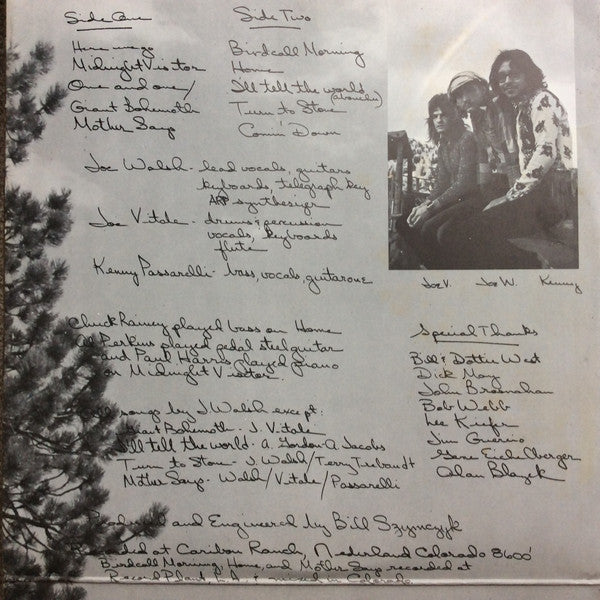 Side One
Here we go
Midnight Visitor
One and one/
Giant Bohemoth
Mother Says
Side Two
Birdcall Morning
Home
I'll tell the world
(about you)
Turn to Stone
Comin' Down
Joe Walsh - lead vocals, guitars
keyboards, telegraph key
ARP synthesizer
Joe Vitale - drums & percussion
vocals, keyboards
flute
Kenny Passarelli - bass, vocals, guitarone
Joe V. Joe W. Kenny
Chuck Rainey played bass on Home
Al Perkins played pedal steel guitar
and Paul Harris played piano
on Midnight Visitor.
All songs by J Walsh except:
Giant Bohemoth - J. Vitale
I'll tell the world - A. Gordon-A Jacobs
Turn to Stone - J. Walsh/Terry Trebaudt
Mother Says - Walsh/Vitale/Passarelli
Special Thanks
Bill & Dottie West
Dick May
John Brosnahan
Bob Webb
Lee Kiefer
Jim Guercio
Gene Eichelberger
Alan Blazek
Produced and Engineered by Bill Szymczyk
Recorded at Caribou Ranch, Nederland Colorado 8600'
Birdcall Morning, Home, and Mother Says recorded at
Record Plant, L.A. & mixed in Colorado